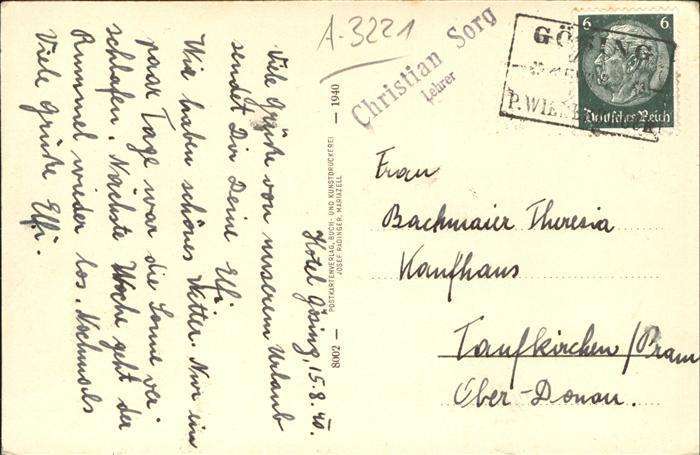 A-3221
Christian Sorg
Lehrer
GÖSING
6 6
Deutsches Reich
Hotel Gösing, 15.8.40.
Viele Grüße von unserem Urlaub
sendet Dir Deine Elfi
Wir haben schönes Wetter. Nur ein
paar Tage war die Sonne ver-
schlafen. Nächste Woche geht der
Rummel wieder los. Nochmals
Viele Grüße Elfi.
8002 — POSTKARTENVERLAG, BUCH- UND KUNSTDRUCKEREI — 1940
JOSEF RADINGER, MARIAZELL
Frau
Bachmaier Theresia
Kaufhaus
Taufkirchen/Pram
Ober-Donau.